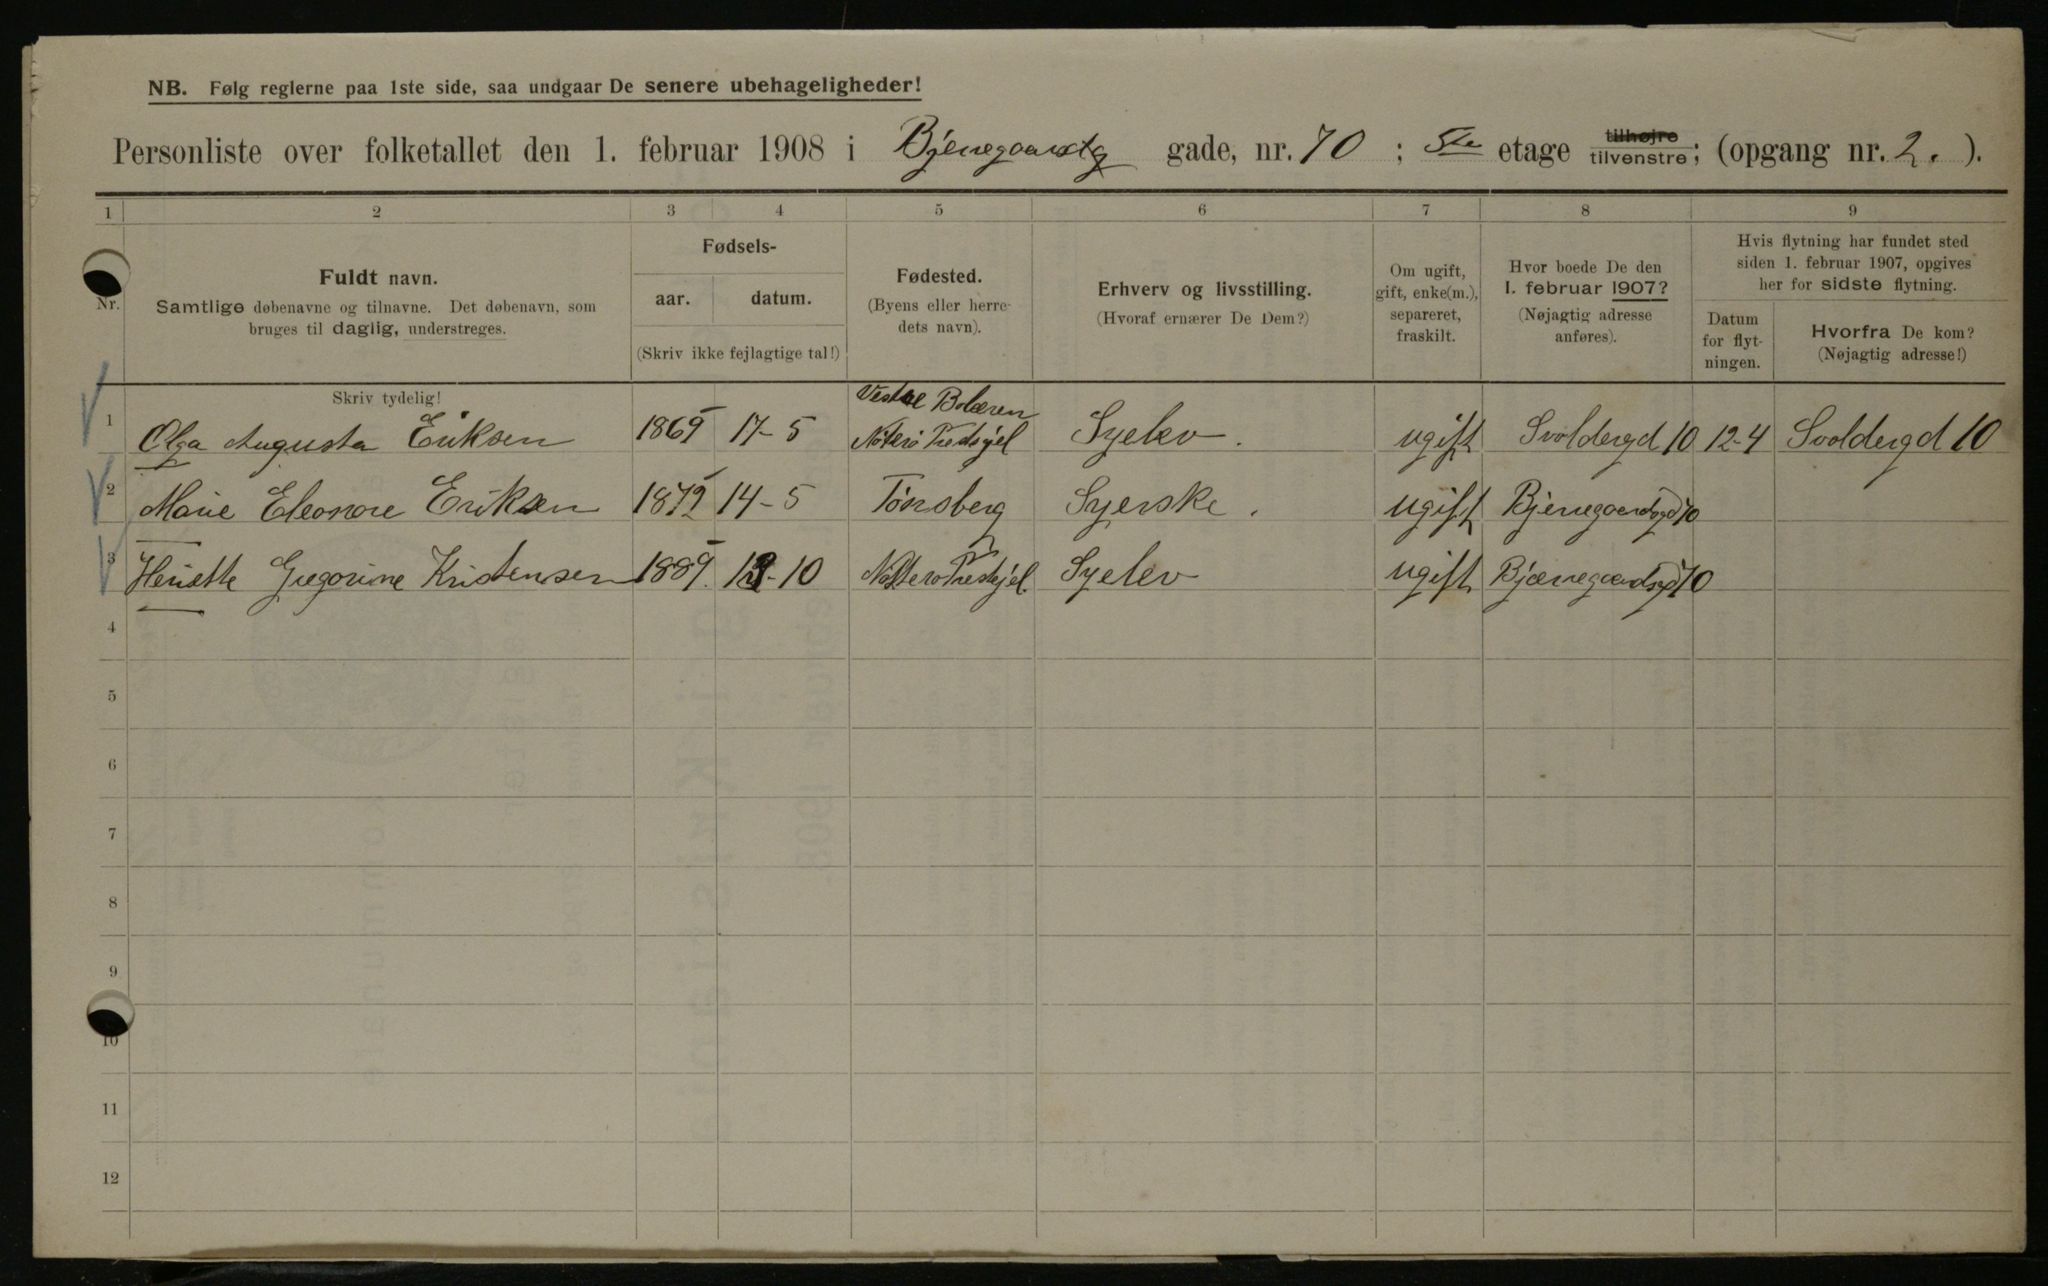 NB. Følg reglerne paa 1ste side, saa undgaar De senere ubehageligheder!
Personliste over folketallet den 1. februar 1908 i Bjenegaarstg gade, nr. 70 ; 5te etage tilhøjre tilvenstre; (opgang nr. 2. ).
1 2 3 4 5 6 7 8 9
Nr.
Fuldt navn.
Samtlige døbenavne og tilnavne. Det døbenavn, som
bruges til daglig, understreges.
Skriv tydelig!
Fødsels-
aar. datum.
(Skriv ikke fejlagtige tal!)
Fødested.
(Byens eller herre-
dets navn).
Erhverv og livsstilling.
(Hvoraf ernærer De Dem?)
Om ugift,
gift, enke(m.),
separeret,
fraskilt.
Hvor boede De den
1. februar 1907?
(Nøjagtig adresse
anføres).
Hvis flytning har fundet sted
siden 1. februar 1907, opgives
her for sidste flytning.
Datum
for flyt-
ningen.
Hvorfra De kom?
(Nøjagtig adresse!)
Vestre Bolæren
1 Olga Augusta Eriksen 1869 17-5 Nøterø Prestgjel Syelev. ugift Svoldergd 10 12-4 Svoldergd 10
2 Marie Eleonore Eriksen 1872 14-5 Tønsberg Syerske. ugift Bjerregaardsgd 70
3 Henriette Gregorine Kristensen 1889. -10 Nøtterø Prestgjel. Syelev ugift Bjærregaardsgd 70
4
5
6
7
8
9
10
11
12